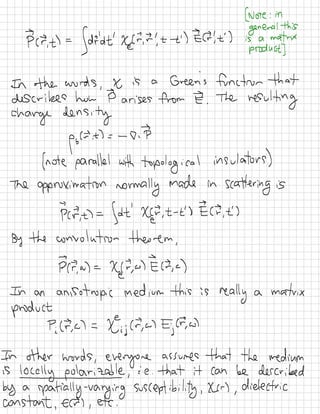 [Note: in
general this
is a matrix
product]
P⃗(r⃗,t) = ∫dr⃗'dt' χₑ(r⃗,r⃗',t-t') E⃗(r⃗',t')
In other words, χ is a Green's function that
describes how P⃗ arises from E⃗. The resulting
charge density
ρ_b(r⃗,t) = -∇·P⃗
(note parallel with topological insulators)
The approximation normally made in scattering is
P⃗(r⃗,t) = ∫dt' χₑ(r⃗,t-t') E⃗(r⃗,t')
By the convolution theorem,
P⃗(r⃗,ω) = χₑ(r⃗,ω) E⃗(r⃗,ω)
In an anisotropic medium this is really a matrix
product
Pᵢ(r⃗,ω) = χᵉᵢⱼ(r⃗,ω) Eⱼ(r⃗,ω)
In other words, everyone assumes that the medium
is locally polarizable, i.e. that it can be described
by a spatially-varying susceptibility, χ(r), dielectric
constant, ε(r), etc.